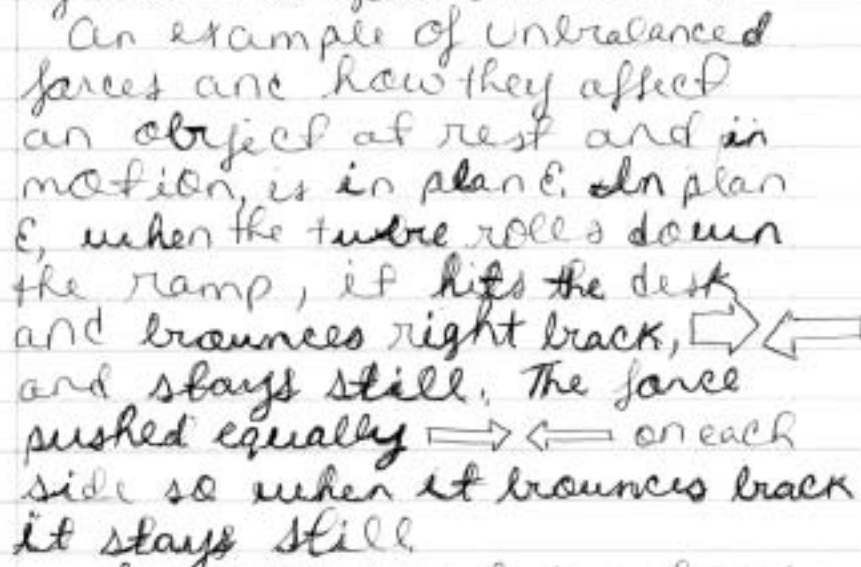 An example of unbalanced
forces and how they affect
an object at rest and in
motion, is in plan E. In plan
E, when the tube rolls down
the ramp, it hits the desk
and bounces right back,
and stays still. The force
pushed equally on each
side so when it bounces back
it stays still